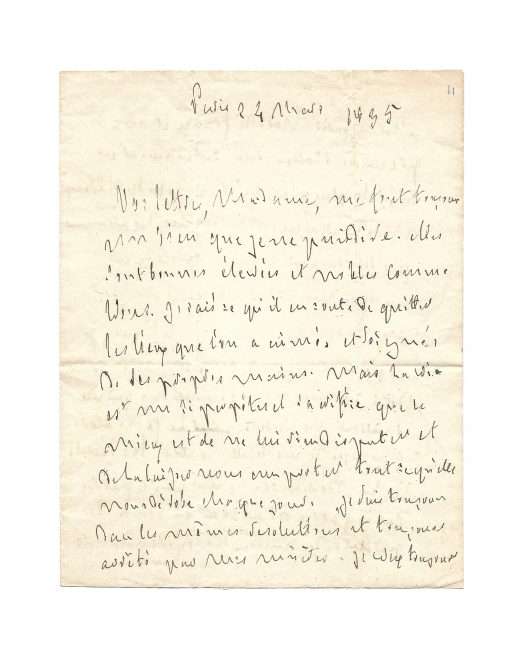 11
Paris 24 Mars 1835
Vos lettres, Madame, me font toujours
un bien que je ne puis dire. elles
sont bonnes élevées et nobles comme
Vous. je sais ce qu'il en coute de quitter
les lieux que l'on a aimés et soignés
de ses propres mains. Mais la vie
est un si perpétuel sacrifice que le
mieux est de ne lui rien disputer et
de la laisser nous emporter tout ce qu'elle
nous dérobe chaque jour. je suis toujours
dans les mêmes résolutions et toujours
arrêté par mes misères. je veux toujours